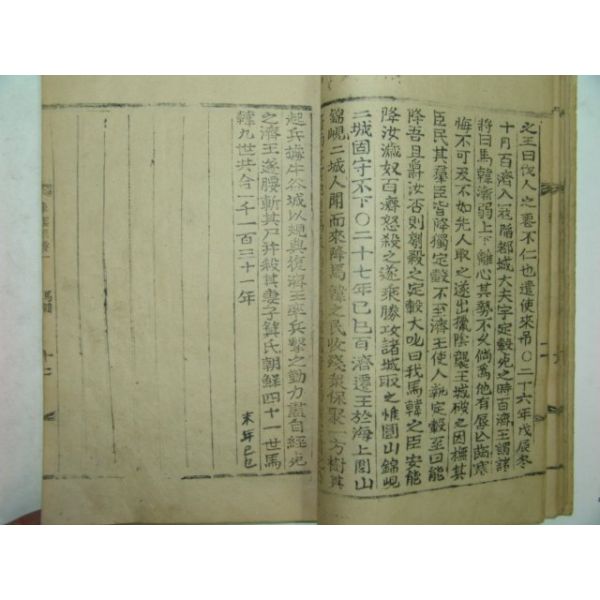 之王曰伐人之喪不仁也遣使來弔〇二十六年戊辰冬
十月百濟入寇陷都城大夫字定 死之時百濟王謂諸
將曰馬韓漸弱上下離心其勢不久倘為他有脣亡齒寒
悔不可及不如先人取之遂出獵陰襲王城破之因撫其
臣民其羣臣皆降獨定 不至濟王使人執定 至曰能
降吾且爵汝否則 殺之定 大叱曰我馬韓之臣安能
降汝 奴百濟怒殺之遂乘勝攻諸城取之惟圓山錦峴
二城固守不下〇二十七年己巳百濟遷王於海上圓山
錦峴二城人聞而來降馬韓之民收殘衆保聚一方樹其
起兵據牛谷城以規興復濟王率兵擊之勤力盡自經死
之濟王遂腰斬其尸幷殺其妻子箕氏朝鮮四十一世馬
韓九世共合一千一百三十一年
末年己巳
馬韓